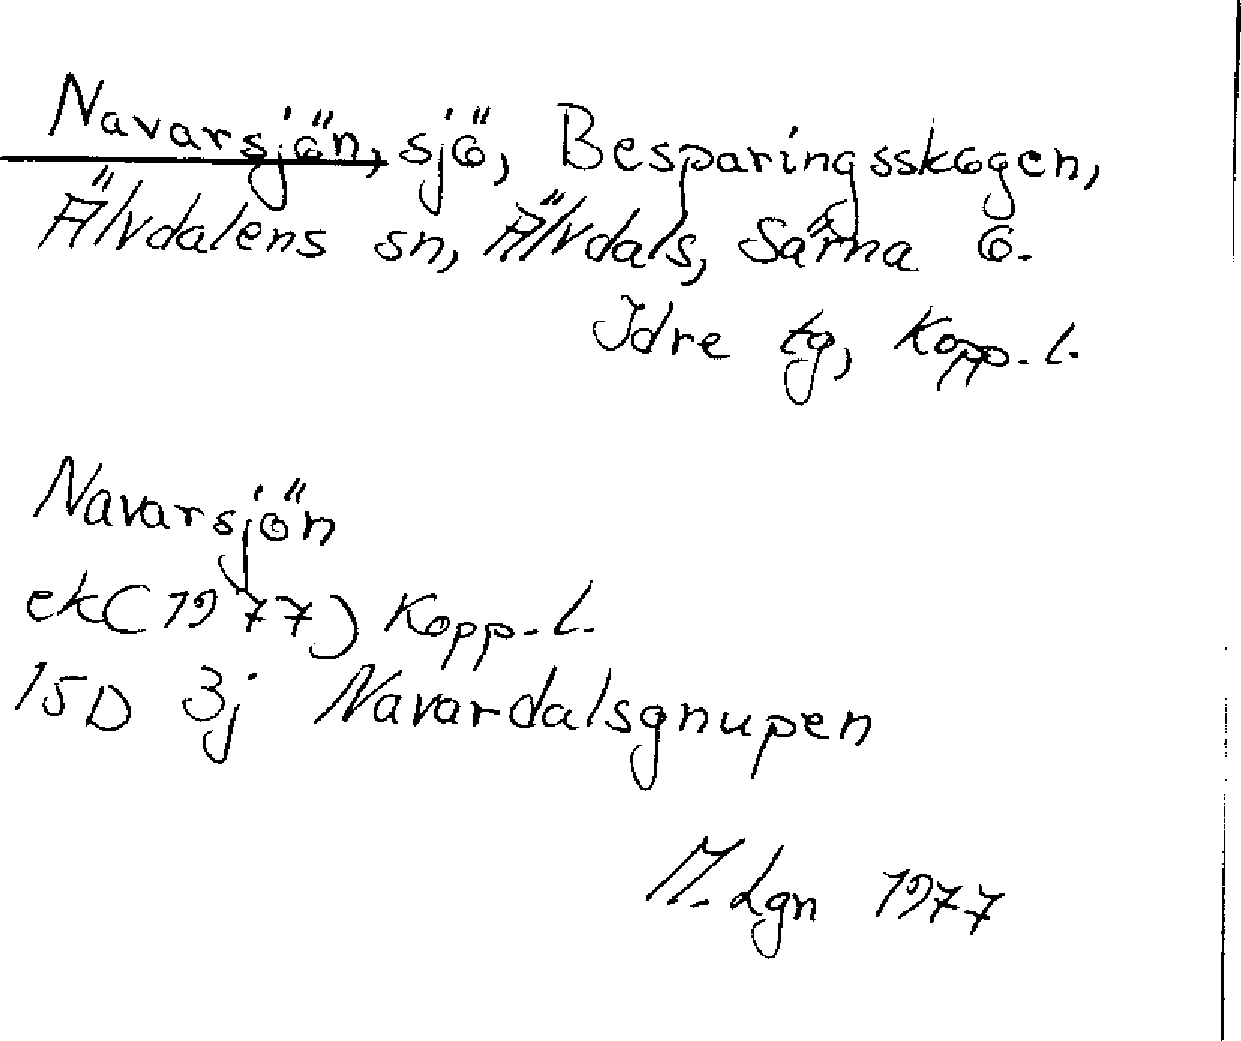 Navarsjön, sjö, Besparingsskogen,
Älvdalens sn, Älvdals, Särna o.
Idre tg, Kopp. l.
Navarsjön
ek(1977) Kopp. l.
15D 3j Navardalsgnupen
M. Lgn 1977